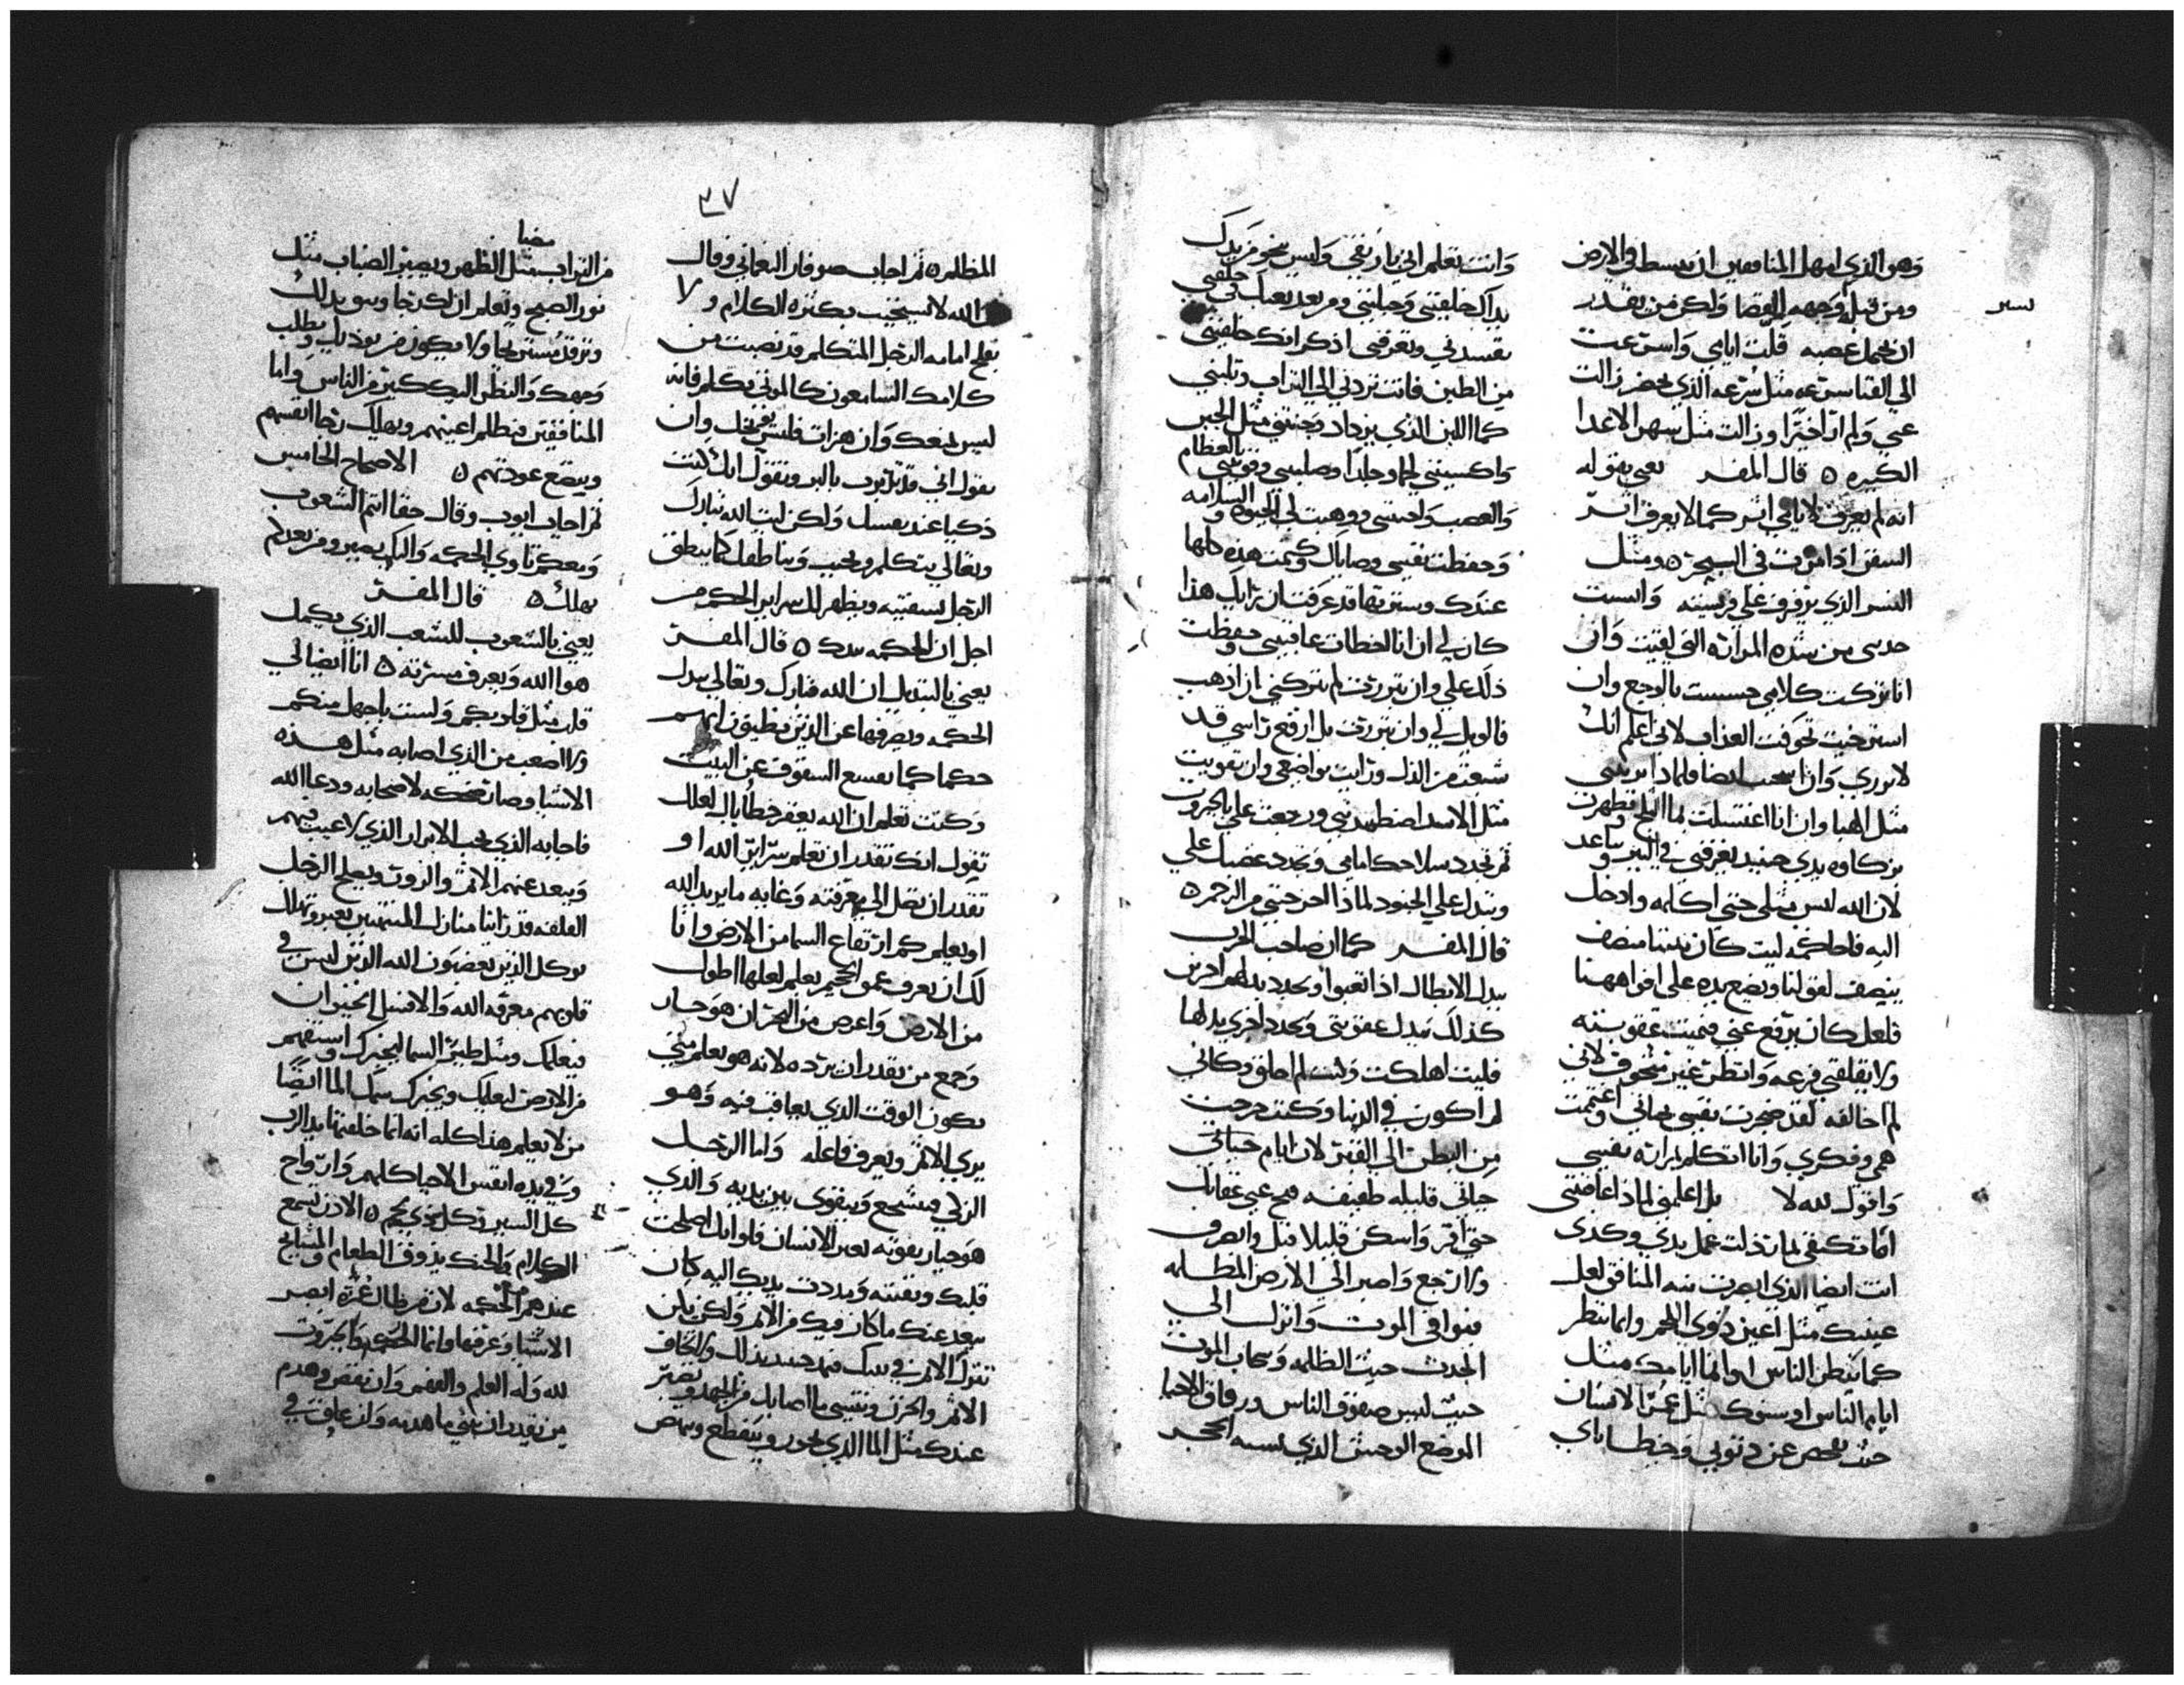 وهو الذي امهل المنافقين ان يبسط في الارض
ومن قبله وجهه القضا ولكن من يقدر
ان يحمل غضبه قلت ايامي واسترعت
الي الفنا سرعه مثل سرعه الذي يحضر زالت
عني ولم ار اخيرا وزالت مثل سهر الاعدا
الكبيره ٥ قال المفسر يعني بقوله
انه لم يعرف لايامي اثر كما لا يعرف اثر
السفن اذا مرت في البحر ٥ ومثل
النسر الذي يرفرف علي فريسته وانسيت
حدسي من شده المراره التي لقيت وان
انا تركت كلامي حسست بالوجع وان
استرخيت تخوفت العذاب لاني اعلم انك
لا تبرري وان انا تعبت ايضا فلماذا تبريني
مثل الهبا وان انا اغتسلت بما الثلج وتطهرت
بزكاوه يدي حينيد يغرقني في البير ويباعد
لان الله ليس مثلي حتي اكلمه وادخل
اليه فاحاكمه ليت كان بيننا منصف
ينصف لقولنا ويضع يده علي افواهنا
فلعل كان يرفع عني فتميت عقوبته
ولا يقلقني فزعه وانطق غير متخوف لاني
لم اخالفه لقد ضجرت نفسي بحياتي واغتمت
همي وفكري وانا اتكلم بمراره نفسي
واقول لله لا بل اعلمني لماذا عاقبتني
اما تكتفي لما رذلت عمل يدي وكدي
انت ايضا الذي ابصرت نيه المنافق لعل
عينيك مثل اعين ذوي اللحم وانما تنظر
كما ينظر الناس او انما ايامك مثل
ايام الناس او سنوك مثل عمر الانسان
حيث تفحص عن ذنوبي وخطاياي
لسر
وانت تعلم اني بار نقي وليس ينجو من يدك
يداك خلقتني وجبلتني ومن بعد تعبك في خلقتي
تفسدني وتغرقني اذكر انك خلقتني
من الطين فانت تردني الي التراب وتلبني
كما اللبن الذي يزداد وجبنتني مثل الجبن
واكسيتني لحما وجلدا وصلبتني وقويتني بالعظام
والعصب واحتنني ووهبت لي الحيوه والسلامه
وحفظت نفسي وصاياك وكتمت هذه كلها
عندك وسترتها قد عرفت ان رايك هذا
كان لي ان انا اخطات عاقبتني وحفظت
ذلك علي وان تبررت لم تتركني ان اذهب
فالويل لي وان تبررت بل ارفع راسي قد
شبعت من الذل ورايت تواضعي وان تقويت
مثل الاسد اصطدتني ورجعت علي بالجبروت
ثم تجدد سلاحك امامي وتجدد غضبك علي
وتبدل علي الجنود لماذا اخرجتني من الرحم ٥
قال المفسر كما ان صاحب الحرب
يبدل الابطال اذا تعبوا ويجدد بدلهم اخرين
كذلك تبدل عقوبتي وتجدد اخري بدلها
فليت اهلكت وليت لم اخلق وكاني
لم اكون في الدنيا وكنت خرجت
من البطن الي القبر لان ايام حياتي
حياتي قليله طفيفه فنح عني عقابك
حتي اقر واسكن قليلا قبل وانصرف
ولا ارجع واصير الي الارض المظلمه
فنوافي الموت وانزل الي
الحدث حيث الظلمه وسحاب الموت
حيث ليس صفوف الناس ورفاق الاحيا
الموضع الوحش الذي يشبه الحجر
٣٧
المظلم ٥ ثم اجاب صوفار النعماتي وقال
ان الله لا يستجيب بكثره الكلام ولا
يفلح امامه الرجل المتكلم قد نصبت من
كلامك السامعون كالموتي تكلم فانه
ليس يمنعك وان هزات فليس من يخجلك وان
تقول اني قد تدبرت بالبر وتقول انك كنت
ذكيا عند نفسك ولكن ليت الله تبارك
وتعالي يتكلم ويجيب ويناطقك كما ينطق
الرجل بسفتيه ويظهر لك سراير الحكمه من
اجل ان الحكمه تبدل ٥ قال المفسر
يعني بالتبديل ان الله تبارك وتعالي يبدل
الحكمه ويصرفها عن الذين يظنون انهم
حكما كما تفسع السقوف عن البيت
وكنت تعلم ان الله يغفر خطاياك لعلك
تقول انك تقدر ان تعلم سراير الله او
تقدر ان تصل الي معرفته وغايه ما يريد الله
او يعلم كم ارتفاع السما من الارض وانا
لك ان تعرف عمق الجحيم تعلم لعلها اطول
من الارض واعرض من البحر ان هو جاز
وجمع من يقدر ان يرده لانه هو يعلم متي
يكون الوقت الذي يعاقب فيه وهو
يري الاثم ويعرف فاعله واما الرجل
الزكي فيتشجع ويتقوي بين يديه والذي
هو جبار بقوته يعين الانسان فلو انك اصلحت
قلبك ونقيته ومددت يديك اليه كان
يبعد عنك ما كان فيك من الاثم ولكن لن
تترك الاثم في بيتك فتمجد حينيد بذلك ولا تخاف
الاثم والحزن وتنسي ما اصابك من الجهد ويصير
عندك مثل الما الذي يجوز وينقطع ويبيض
من التراب مضيا مثل الظهر ويصير الضباب مثل
نور الصبح وتعلم ان لك رجا وسويد لك
وترقد مستريحا ولا يكون من يوذيك ويطلب
وجهك والنظر اليك كثير من الناس واما
المنافقين فتظلم اعينهم ويهلك رجا انفسهم
ويتضع عودتهم ٥ الاصحاح الخامس
ثم اجاب ايوب وقال حقا انتم الشعوب
ومعكم تاوي الحكمه واليكم تصير ومن بعدكم
تهلك ٥ قال المفسر
يعني بالشعوب للشعب الذي يكمل
هوا الله ويعرف مسرته ٥ انا ايضا لي
قلب مثل قلوبكم ولست باجهل منكم
ولا اصعب من الذي اصابه مثل هذه
الاشيا وصار ضحكه لاصحابه ودعا الله
فاجابه الذي يحب الابرار الذي لا عيب فيهم
ويبعد عنهم الاثم والزور ويصلح الرجل
العلفه قد راينا منازل المنتهبين تعبر وتهلك
توكل الذين يغضبون الله الذين ليس في
قلوبهم معرفه الله والا فسل الحيوان
فيعلمك ومثل طير السما ليخبرك واستفهم
من الارض لتعلمك ويخبرك سمك الما ايضا
من لا يعلم هذا كله انه انما خلقتها يد الرب
وفي يده انفس الاحيا كلهم وارواح
كل البشر وكل ذي لحم ٥ الاذن تسمع
الكلام والحنك يذوق الطعام والمشايخ
عندهم الحكمه لان من طال عمره ابصر
الاشيا وعرفها وانما الحكمه والجبروت
لله وله العلم والفهم وان نقض وهدم
من يقدر ان يبني ما هدمه وان عاقب في